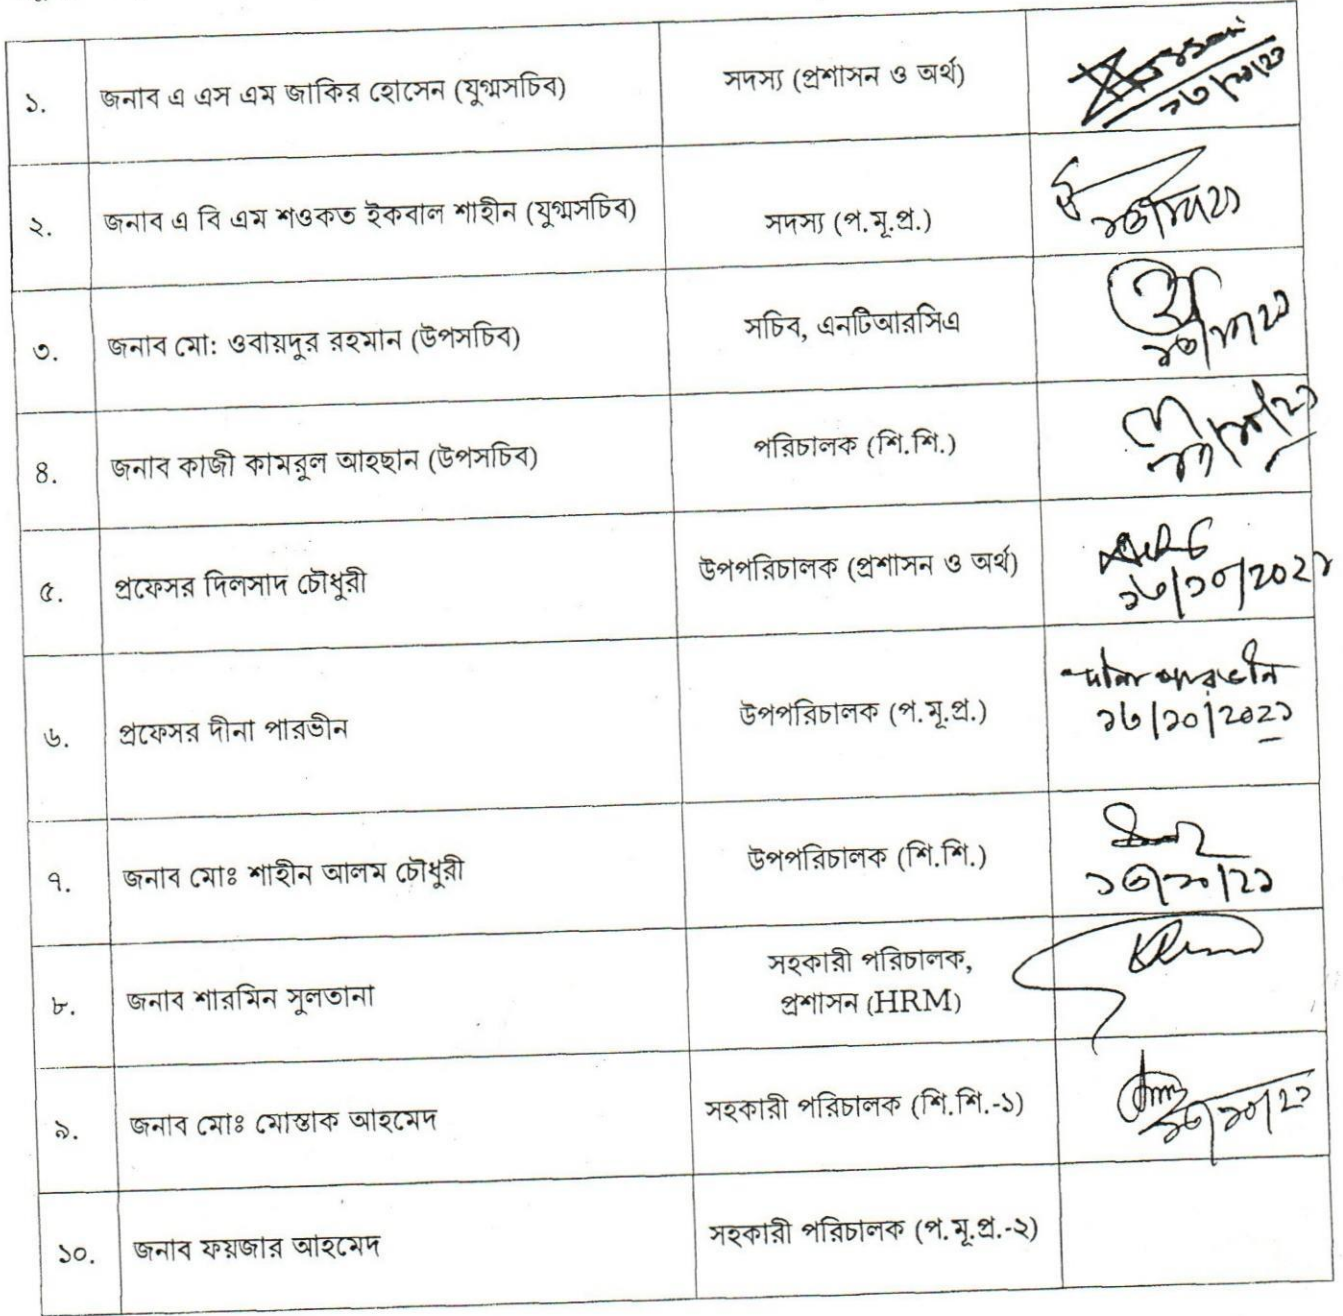 ১. জনাব এ এস এম জাকির হোসেন (যুগ্মসচিব) সদস্য (প্রশাসন ও অর্থ)
২. জনাব এ বি এম শওকত ইকবাল শাহীন (যুগ্মসচিব) সদস্য (প.মূ.প্র.)
৩. জনাব মো: ওবায়দুর রহমান (উপসচিব) সচিব, এনটিআরসিএ
৪. জনাব কাজী কামরুল আহছান (উপসচিব) পরিচালক (শি.শি.)
৫. প্রফেসর দিলসাদ চৌধুরী উপপরিচালক (প্রশাসন ও অর্থ)
১৩/১০/২০২১
৬. প্রফেসর দীনা পারভীন উপপরিচালক (প.মূ.প্র.) দীনা পারভীন
১৩/১০/২০২১
৭. জনাব মোঃ শাহীন আলম চৌধুরী উপপরিচালক (শি.শি.)
১৩/১০/২১
৮. জনাব শারমিন সুলতানা সহকারী পরিচালক,
প্রশাসন (HRM)
৯. জনাব মোঃ মোস্তাক আহমেদ সহকারী পরিচালক (শি.শি.-১)
১৩/১০/২১
১০. জনাব ফয়জার আহমেদ সহকারী পরিচালক (প.মূ.প্র.-২)